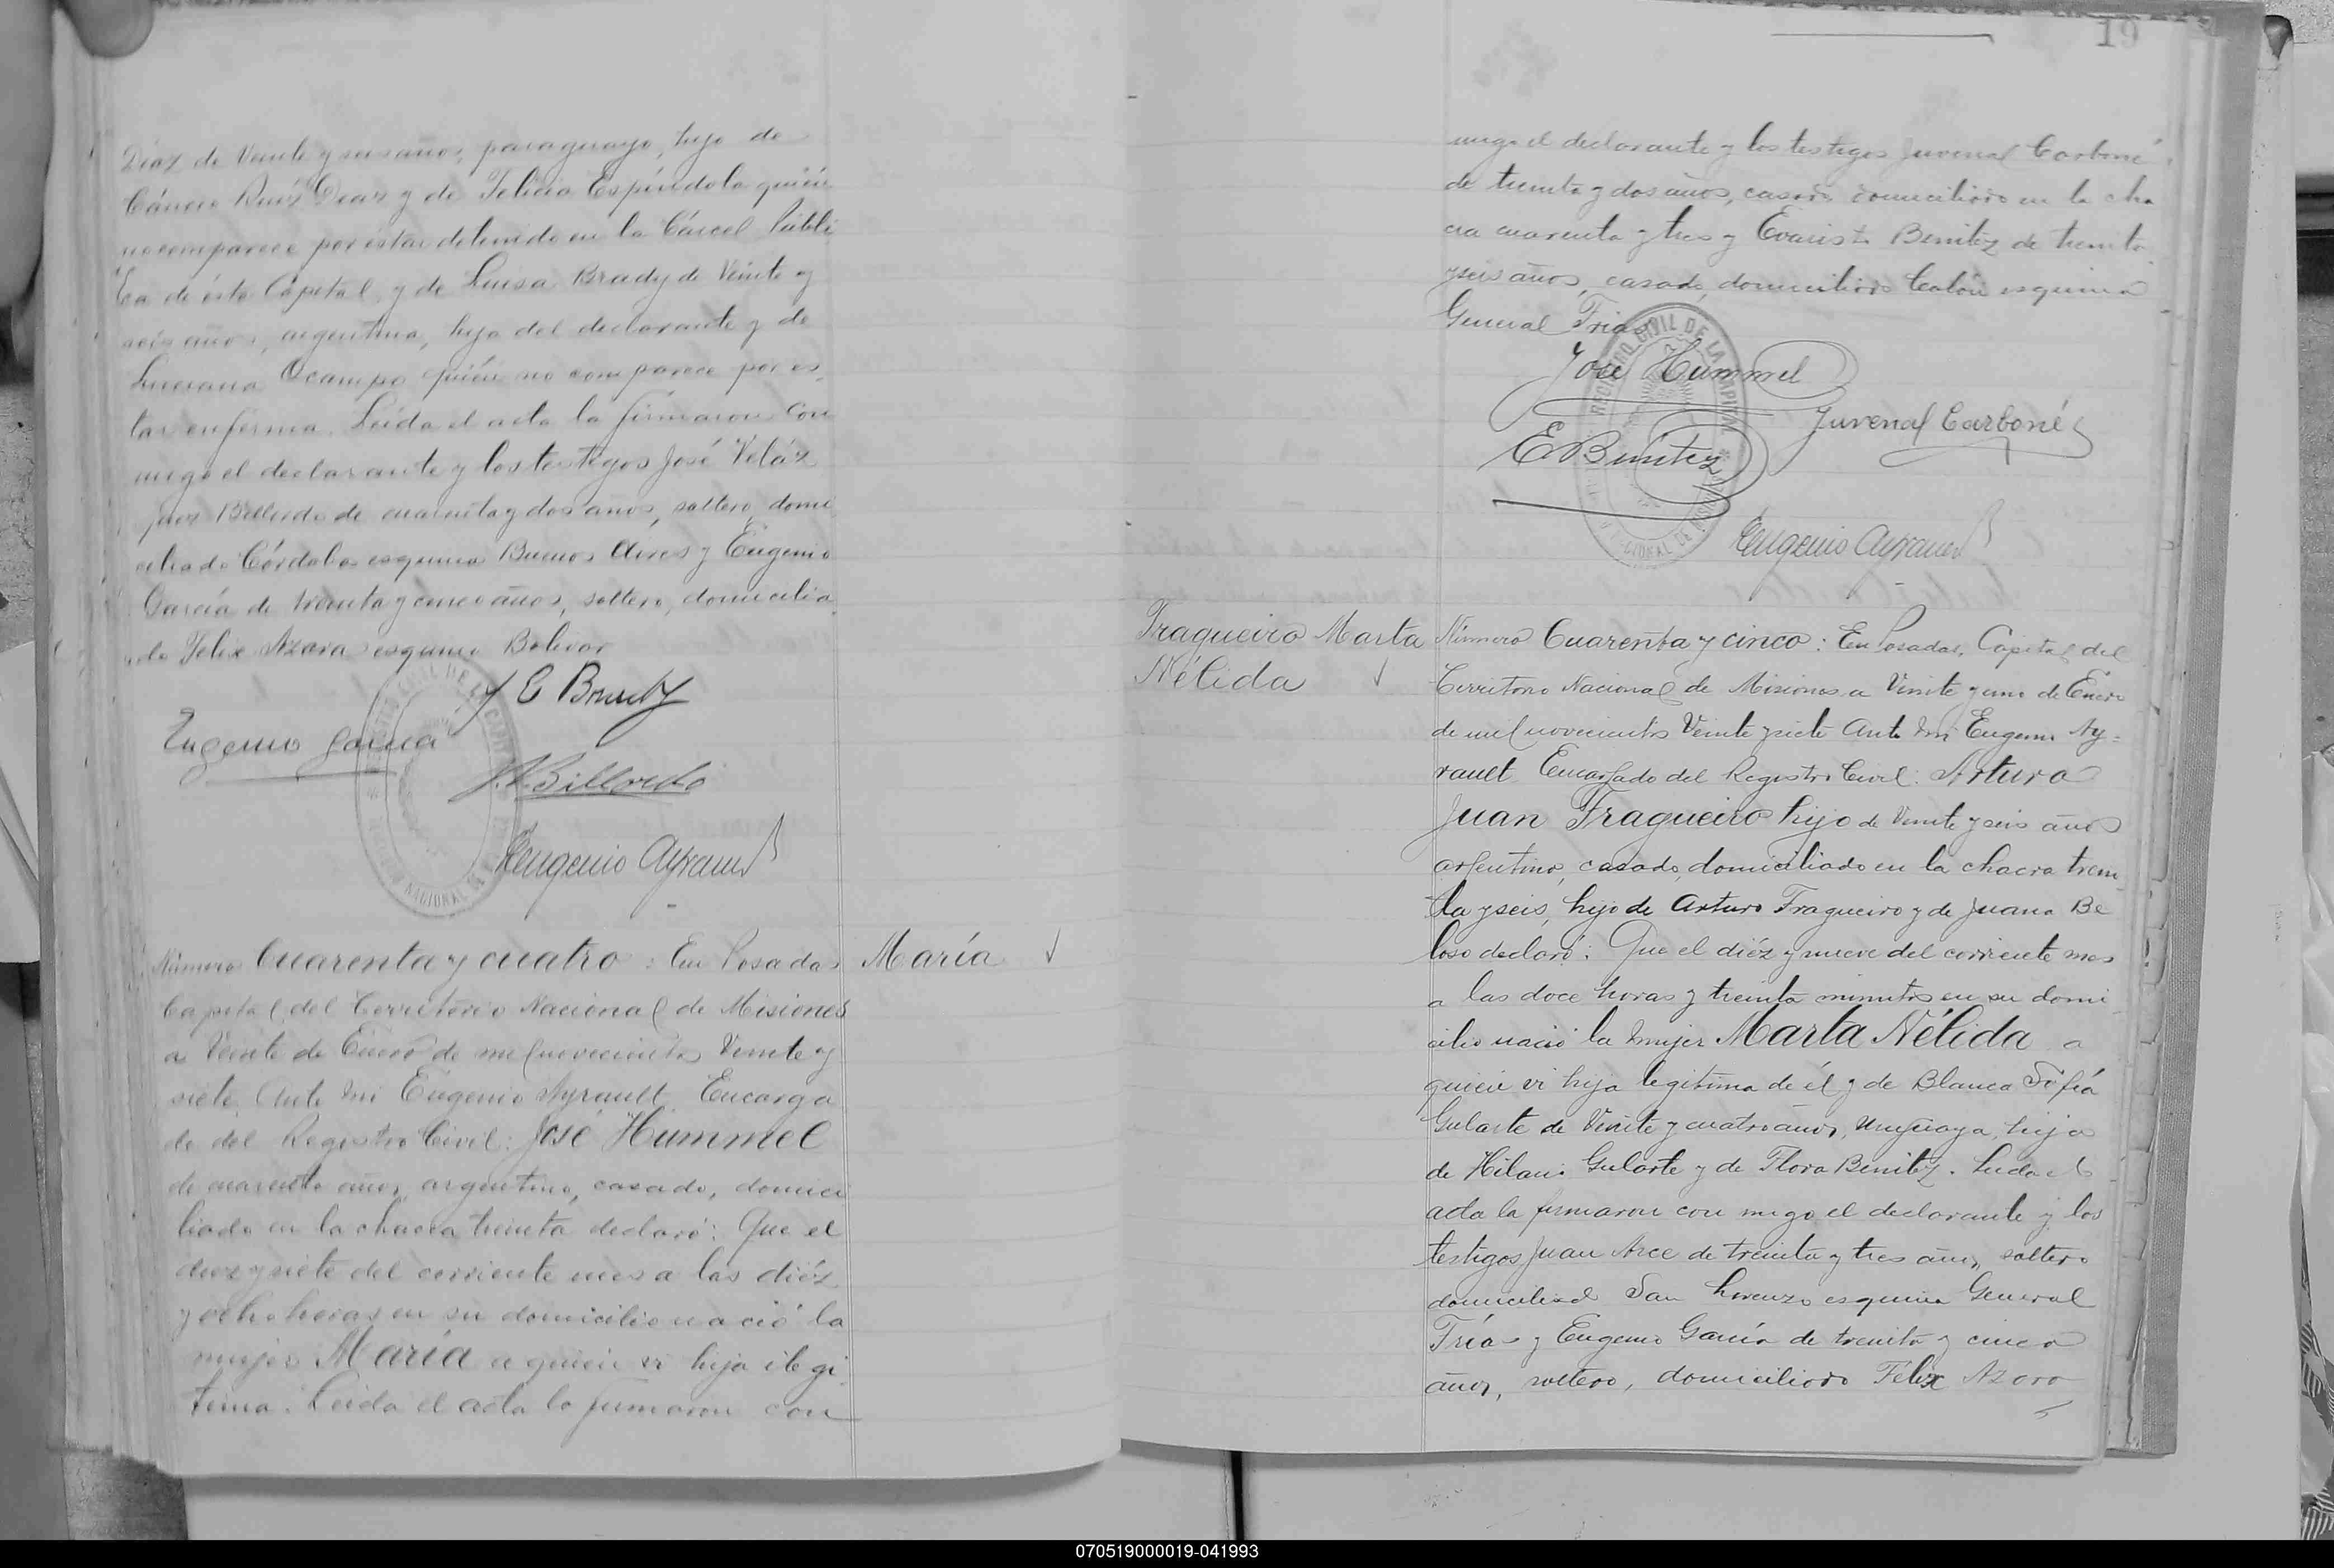 Díaz de Veinte y seis años, paraguayo, hijo de
Cáncio Ruíz Díaz y de Felicia Espíndola quién
no comparece por estar detenido en la Cárcel Públi
ca de ésta Capital, y de Luisa Brady de Veinte y
seis años, argentina, hija del declarante y de
Ocampo quién no comparece por es-
tar enferma. Leída el acta la firmaron con
migo el declarante y los testigos José Veláz
quez Billordo de cuarenta y dos años, soltero, domi
ciliado Córdoba esquina Buenos Aires y Eugenio
García de treinta y cinco años, soltero, domicilia
do Felix Azara esquina Bolivar
Eugenio García
J. V. Billordo
Eugenio Ayrault
Número Cuarenta y cuatro: En Posadas
Capital del Territorio Nacional de Misiones
a Veinte de Enero de mil novecientos Veinte y
siete. Ante mi Eugenio Ayrault, Encarga
do del Registro Civil: José Hummel
de cuarenta años, argentino, casado, domici
liado en la chacra treinta declaró: Que el
diez y siete del corriente mes a las diéz
y ocho horas en su domicilio nació la
mujer María a quien vi hija ilegí
tima. Leída el acta la firmaron con
María
19
migo el declarante y los testigos Juvenal Carboné
de treinta y dos años, casado domiciliado en la cha
cra cuarenta y tres y Evaristo Benitez de treinta
y seis años, casado, domiciliado Colón esquina
General Frias
José Hummel
Juvenal Carboné
E Benítez
Eugenio Ayrault
Fragueiro Marta
Nélida
Número Cuarenta y cinco: En Posadas, Capital del
Territorio Nacional de Misiones a Veinte y uno de Enero
de mil novecientos Veinte y siete Ante mi Eugenio Ay=
rault Encargado del Registro Civil: Arturo
Juan Fragueiro hijo de Veinte y seis años
argentino, casado, domiciliado en la chacra trein
ta y seis, hijo de Arturo Fragueiro y de Juana Be
loso declaró: Que el diéz y nueve del corriente mes
a las doce horas y treinta minutos en su domi
cilio nació la mujer Marta Nélida a
quien vi hija legítima de él y de Blanca Sofía
Gularte de Veinte y cuatro años, Uruguaya, hija
de Hilario Gularte y de Flora Benitez. Leida el
acta la firmaron con migo el declarante y los
testigos Juan Arce de treinta y tres años, soltero
domiciliado San Lorenzo esquina General
Frías y Eugenio García de treinta y cinco
años, soltero, domiciliado Félix Azara
070519000019-041993